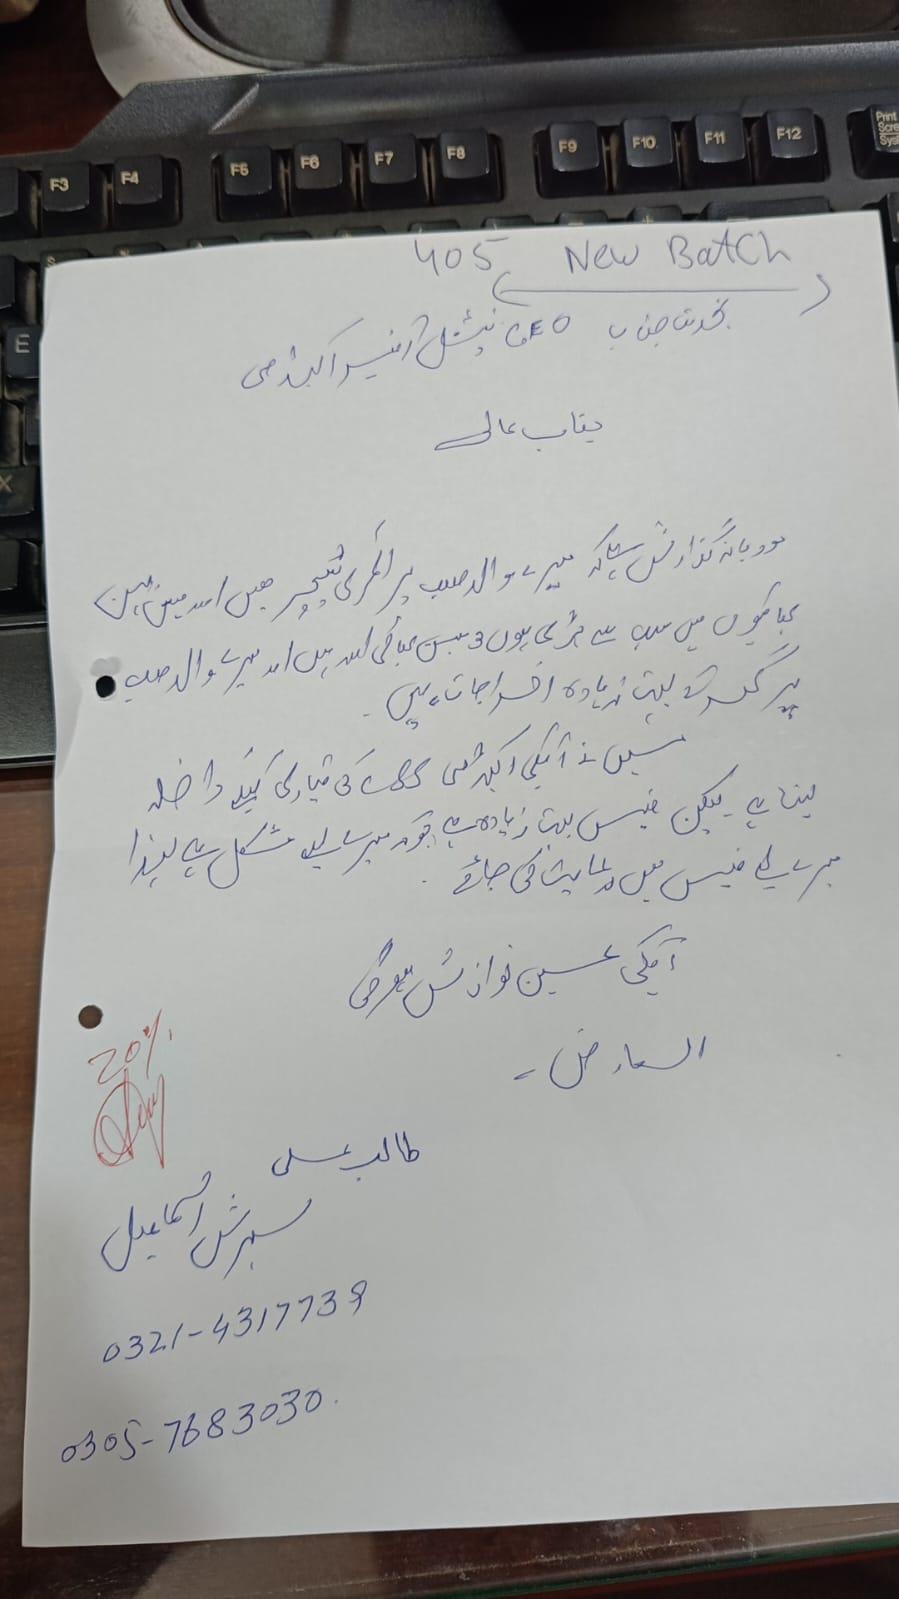 405 New Batch
بخدمت جناب CEO نیشنل آفیسر اکیڈمی
جناب عالی
مودبانہ گذارش ہے کہ میرے والد صاحب پرائمری ٹیچر ہیں اور میں بہن
بھائیوں میں سب سے بڑی ہوں 3 بہن بھائی اور ہیں اور میرے والد صاحب
پر گھر کے بہت زیادہ اخراجات ہیں۔
میں نے آپکی اکیڈمی کی تیاری کیلئے داخلہ
لینا ہے لیکن فیس بہت زیادہ ہے جو کہ میرے لیے مشکل ہے لہذا
میرے لیے فیس میں رعایت کی جائے۔
آپکی عین نوازش ہوگی
العارض -
20%
سہرش اسماعیل
0321-4317739
0305-7683030.
F3
F4
F5
F6
F7
F8
F9
F10
F11
F12
Print
E
X